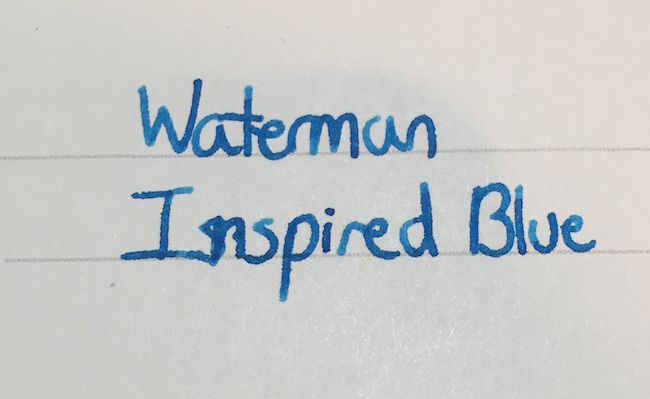 Waterman
Inspired Blue